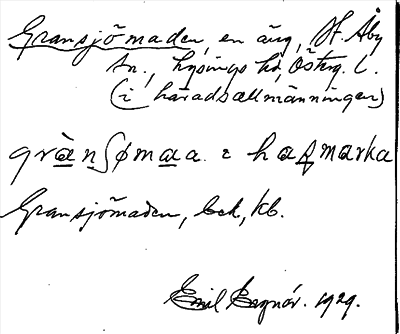 Gransjömaden, en äng, St. Åby
sn., Lysings hd, Österg. l.
(i häradsallmänningen)
grànʃømaa
Gransjömaden, bek, kb.
Emil 1929.